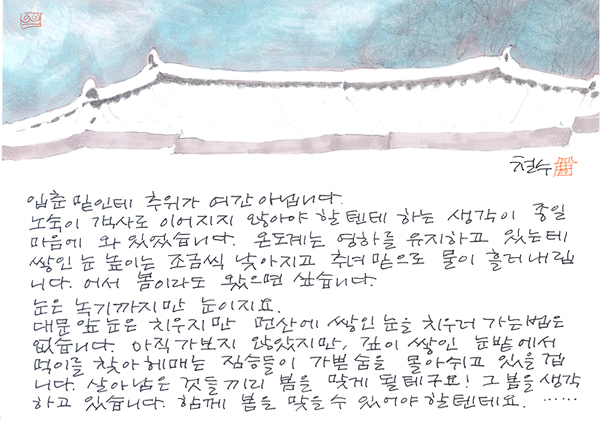 철수
입춘 밑인데 추위가 여간 아닙니다.
노숙이 객사로 이어지지 않아야 할텐데 하는 생각이 종일
마음에 와 있었습니다. 온도계는 영하를 유지하고 있는데
쌓인 눈 높이는 조금씩 낮아지고 추녀 밑으로 물이 흘러내립
니다. 어서 봄이라도 왔으면 싶습니다.
눈은 녹기까지만 눈이지요.
대문앞 눈은 치우지만 먼산에 쌓인 눈을 치우러 가는 법은
없습니다. 아직 가보지 않았지만, 깊이 쌓인 눈밭에서
먹이를 찾아 헤매는 짐승들이 가쁜 숨을 몰아쉬고 있을 겁
니다. 살아남은 것들끼리 봄을 맞게 될테구요! 그 봄을 생각
하고 있습니다. 함께 봄을 맞을 수 있어야 할텐데요. ……